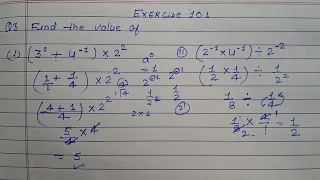 EXERCISE 10.1
Q3 Find the value of
(i) (3⁰ + 4⁻¹) × 2²
(1/1 + 1/4) × 2²
(4+1/4) × 2²
5/4 × 4
= 5
a⁰
= 1
1/2
2×2
(ii) (2⁻¹ × 4⁻¹) ÷ 2⁻²
(1/2 × 1/4) ÷ 1/2²
1/8 ÷ 1/4
1/8 × 4/1 = 1/2
2